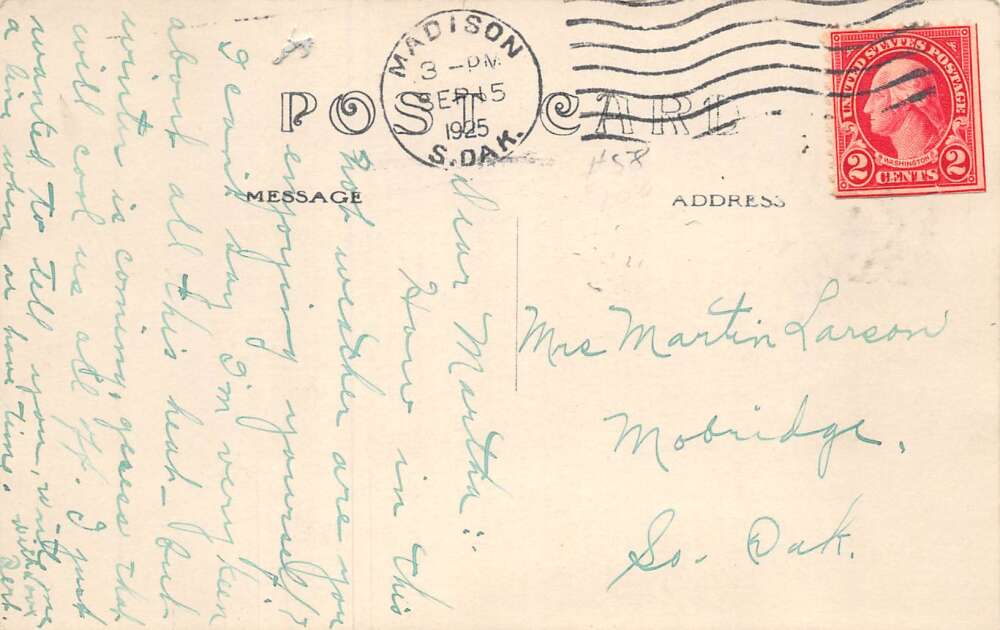 POST CARD
MADISON
3 - PM
SEP 15
1925
S. DAK.
UNITED STATES POSTAGE
WASHINGTON
2 CENTS 2
HSR
MESSAGE
ADDRESS
Dear Martha:
How in this
hot wether are you
enjoying yourself?
I can't say I'm very keen
about all this heat - but
winter is coming, gess that
will cool us all off. I just
wanted to tell you, write me
a line when u have time.
with love
Bert.
Mrs Martin Larson
Mobridge,
So. Dak.